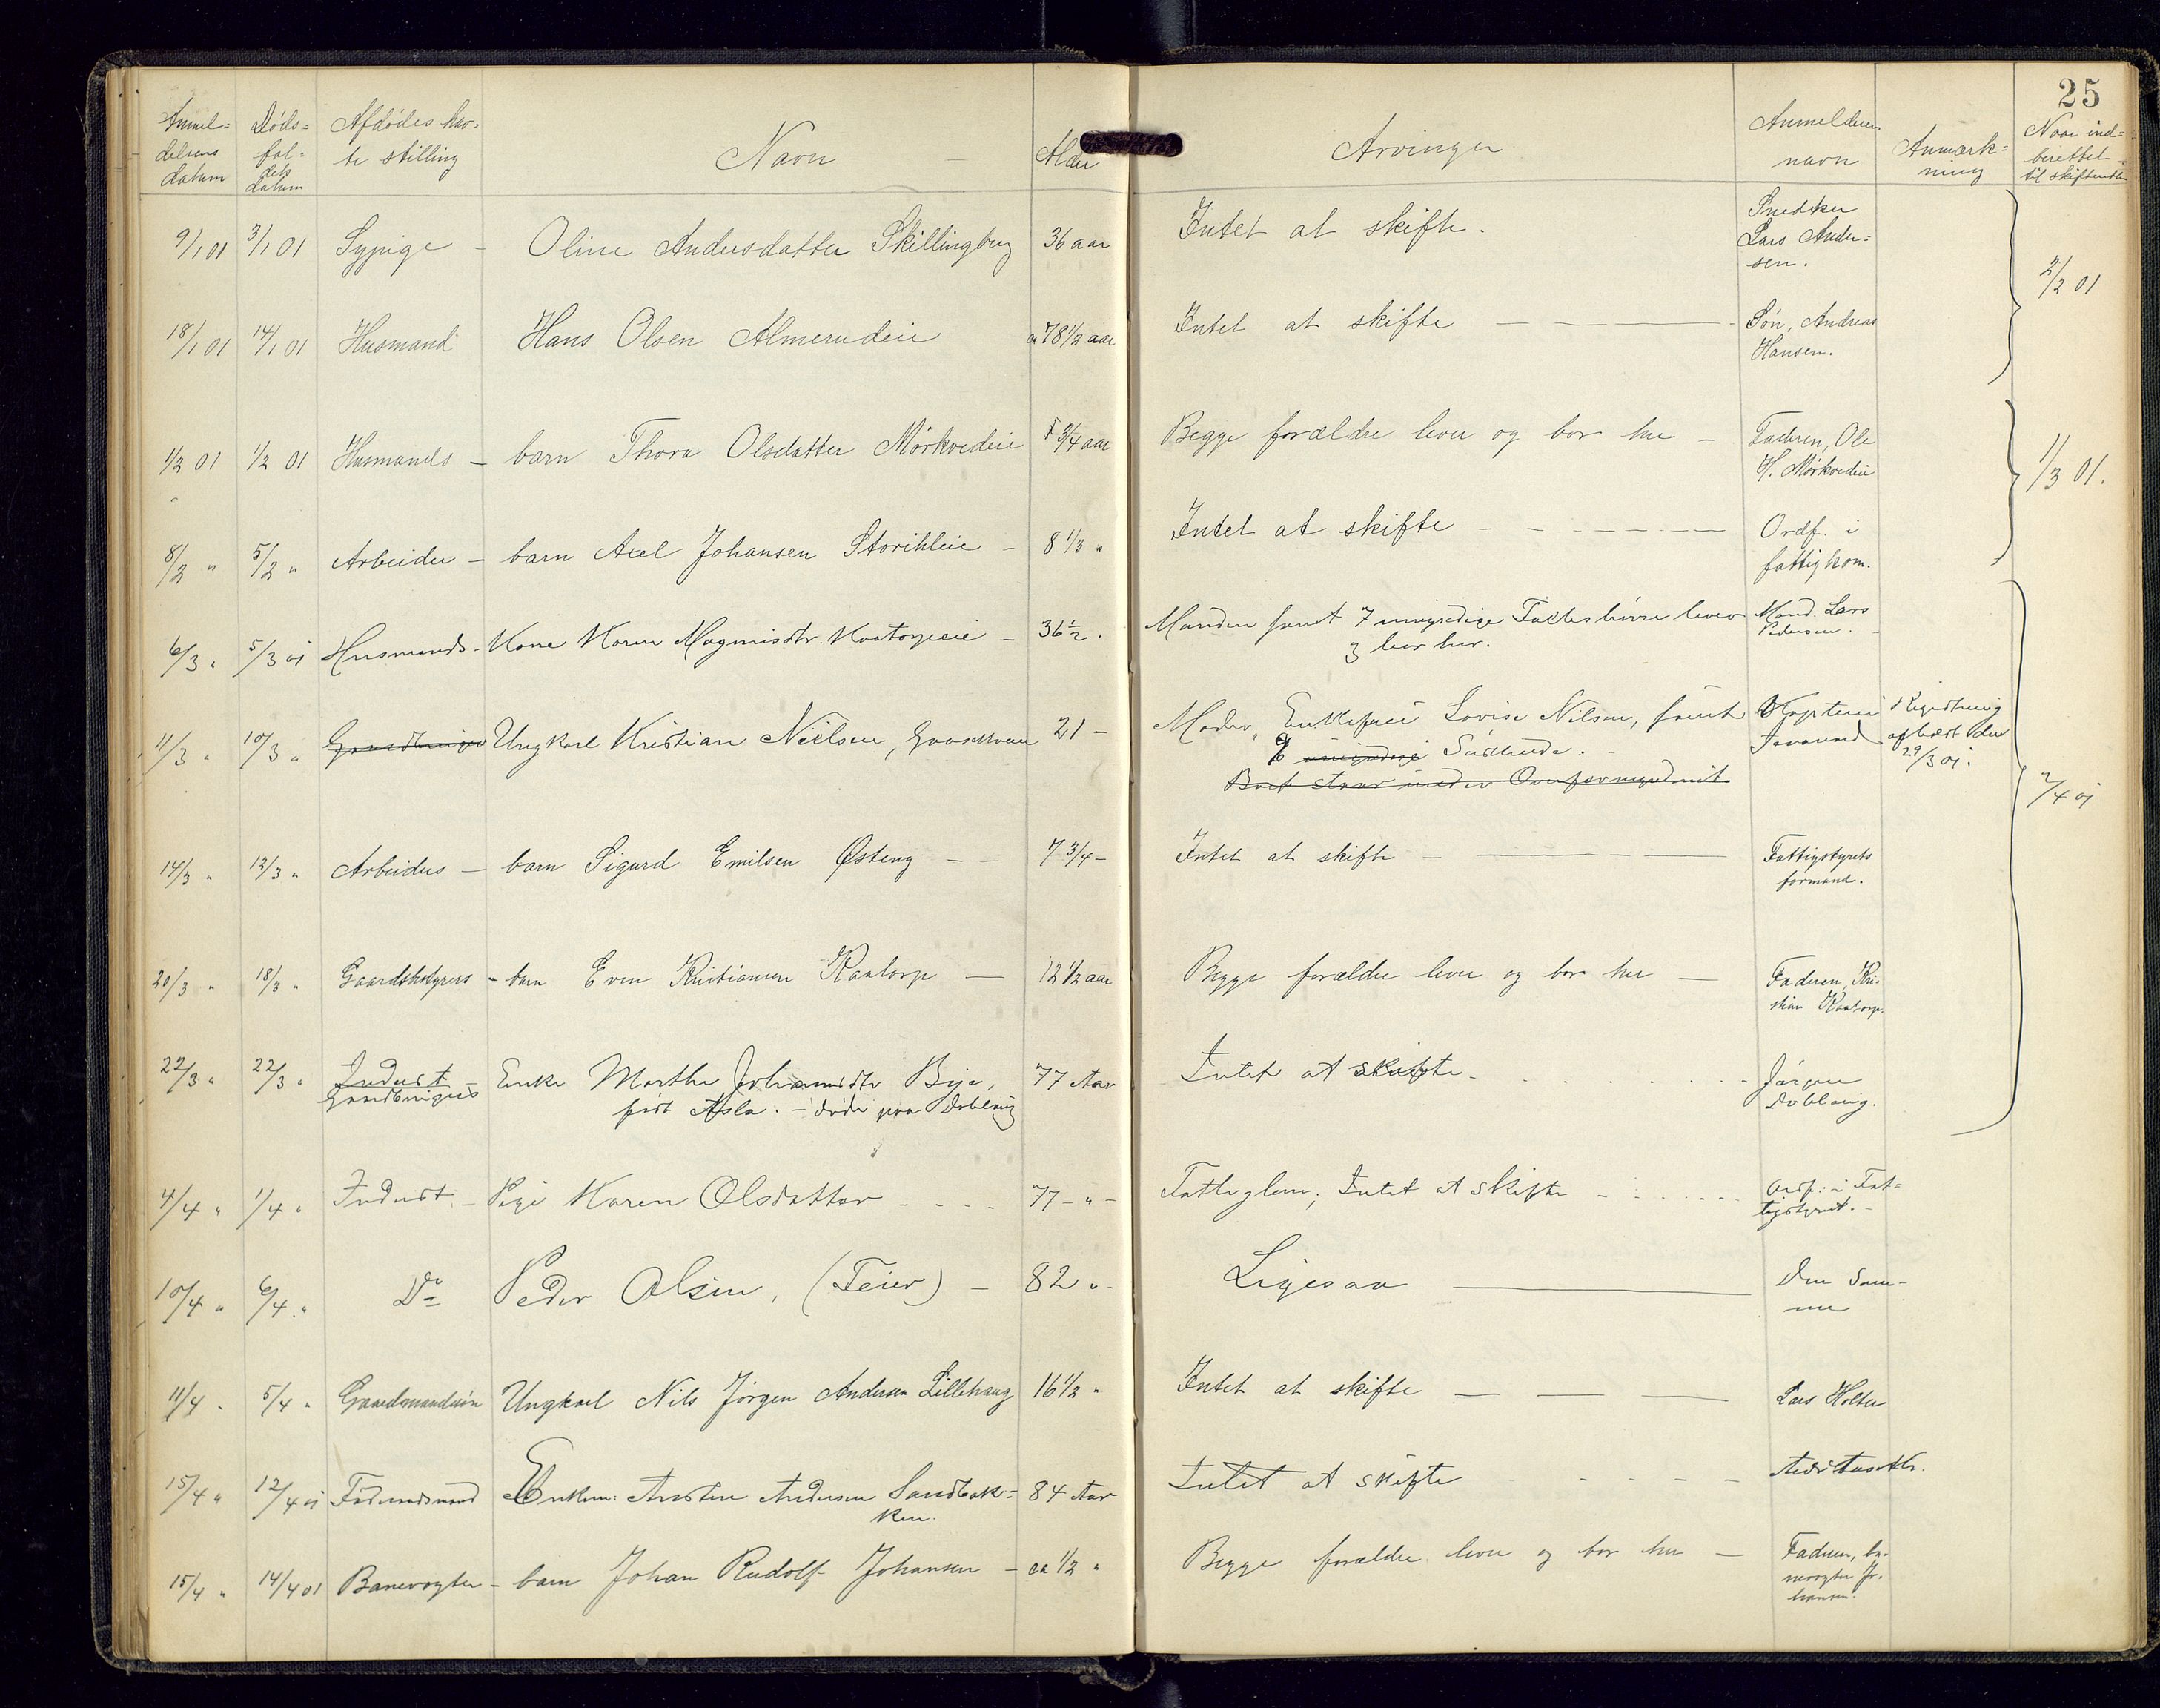 25
Anmel=
delsens
datum
Døds=
fal=
dets
datum
Afdødes hav=
te stilling
Navn
Alder
Arvinger
Anmelderens
navn
Anmærk=
ning
Naar ind=
berettet
til skifteretten
9/1 01 3/1 01 Sypige - Oline Andersdatter Skillingbrg 36 aar Intet at skifte. Snedker
Lars Ander=
sen.
2/2 01
18/1 01 14/1 01 Husmand Hans Olsen Almerudeie 78 1/2 aar Intet at skifte - Søn, Andreas
Hansen.
1/2 01 1/2 01 Husmands - barn Thora Olsdatter Mörkvedeie 3/4 aar Begge forældre lever og bor her - Faderen, Ole
H. Mörkvedeie
1/3 01.
8/2 " 5/2 " Arbeider - barn Axel Johansen - 8 1/3 " Intet at skifte - Ordf. i
fattigkom.
6/3 " 5/3 01 Husmands - Kone Karen Magnusdtr. Kaatorpeie - 36 1/2 " Manden samt 7 umyndige Fællesbörn lever Mand. Lars
Pedersen.
og bor her.
11/3 " 10/3 " Gaardbruger Ungkarl Kristian Nielsen, 21 - Moder, Enkefru Lovise Nilsen, samt Kaptein Registrering
6 umyndige Södskende. afholdt den
29/3 01.
Boet staar under Overformynderiet
2/4 01
14/3 " 12/3 " Arbeiders - barn Sigurd Emilsen Østeng - 7 3/4 - Intet at skifte - Fattigstyrets
formand.
20/3 " 18/3 " Gaardsbestyrers - barn Even Kristiansen Kaatorp - 12 1/2 aar Begge forældre lever og bor her - Faderen, Kri-
stian Kaatorp.
22/3 " 22/3 " Inderst - Enke Marthe Johannesdtr Bye, 77 Aar Intet at skifte - Jörgen
Dobloug.
Gaardbrugers født Asla. - døde paa Dobloug
4/4 " 1/4 " Inderst - Pige Karen Olsdatter - 77 - " - Fattiglem; Intet at skifte - Ordf. i Fat=
tigstyret. -
10/4 " 6/4 " Do Peder Olsen, (Feier) - 82 " - Ligesaa - Den Sam-
me
11/4 " 5/4 " Gaardmandssön Ungkarl Nils Jörgen Andersen Lillehaug 16 1/2 " Intet at skifte - Lars Holter
15/4 " 12/4 01 Föderaadsmand Enkem. Andersen Sandbak= 84 Aar Intet at skifte
ken.
15/4 " 14/4 01 Banevogter - barn Johan Rudolf Johansen - ca 1/2 " Begge forældre lever og bor her - Faderen, ba-
nevogter Jo-
hansen.